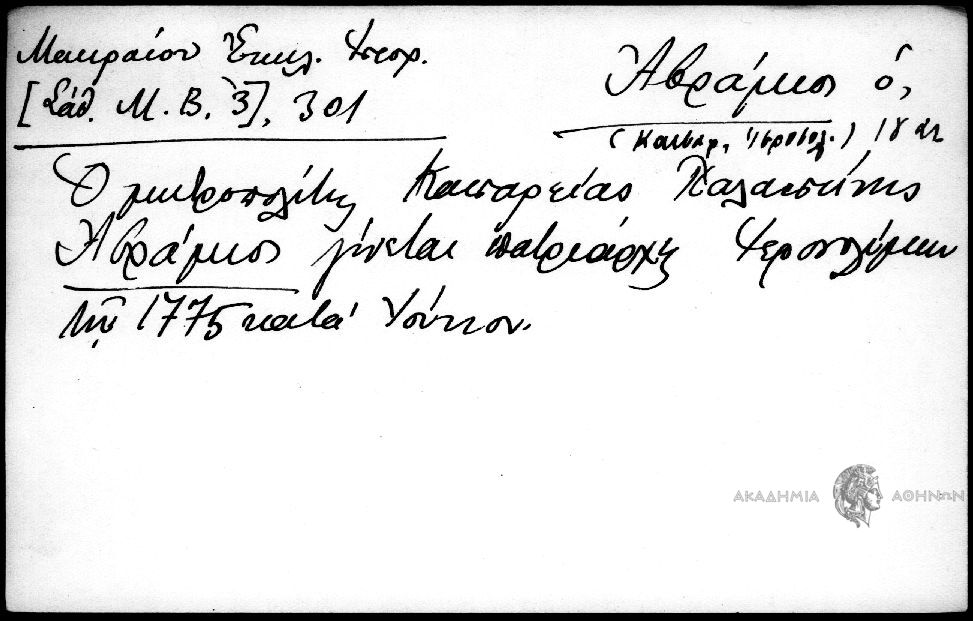 Μακραίου Ἐκκλ. Ἱστορ.
[Σάθ. Μ. Β. 3], 301
Ἀβράμιος ὁ,
(Καισαρ, Ἱεροσολ.) 18
Ὁ μητροπολίτης Καισαρείας Παλαιστίνης
Ἀβράμιος γίνεται πατριάρχης Ἱεροσολύμων
τῷ 1775 κατὰ Ἰούνιον.
ΑΚΑΔΗΜΙΑ ΑΘΗΝΩΝ